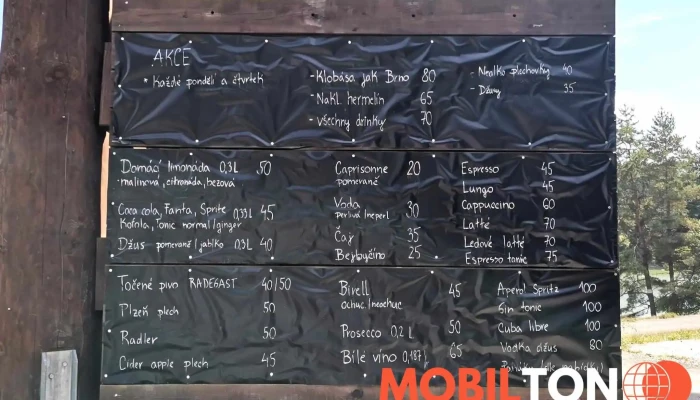 AKCE
* Každé pondělí a čtvrtek
- Klobása jak Brno 80
- Nakl. hermelín 65
- všechny drinky 70
- Nealko plechovky 40
- Džusy 35
Domácí limonáda 0,3L 50
- malinová, citronáda, bezová
Coca cola, Fanta, Sprite 0,33L 45
Kofola, Tonic normal/ginger
Džus pomeranč/jablko 0,3L 40
Caprisonne 20
pomeranč
Voda 30
perlivá/neperl.
Čaj 35
Bejbyčino 25
Espresso 45
Lungo 45
Cappuccino 60
Latté 70
Ledové latté 70
Espresso tonic 75
Točené pivo RADEGAST 40/50
Plzeň plech 50
Radler 50
Cider apple plech 45
Birell 45
ochuc/neochuc
Prosecco 0,2 L 50
Bílé víno 0,187 L 65
Aperol Spritz 100
Gin tonic 100
Cuba libre 100
Vodka džus 80
MOBILTON